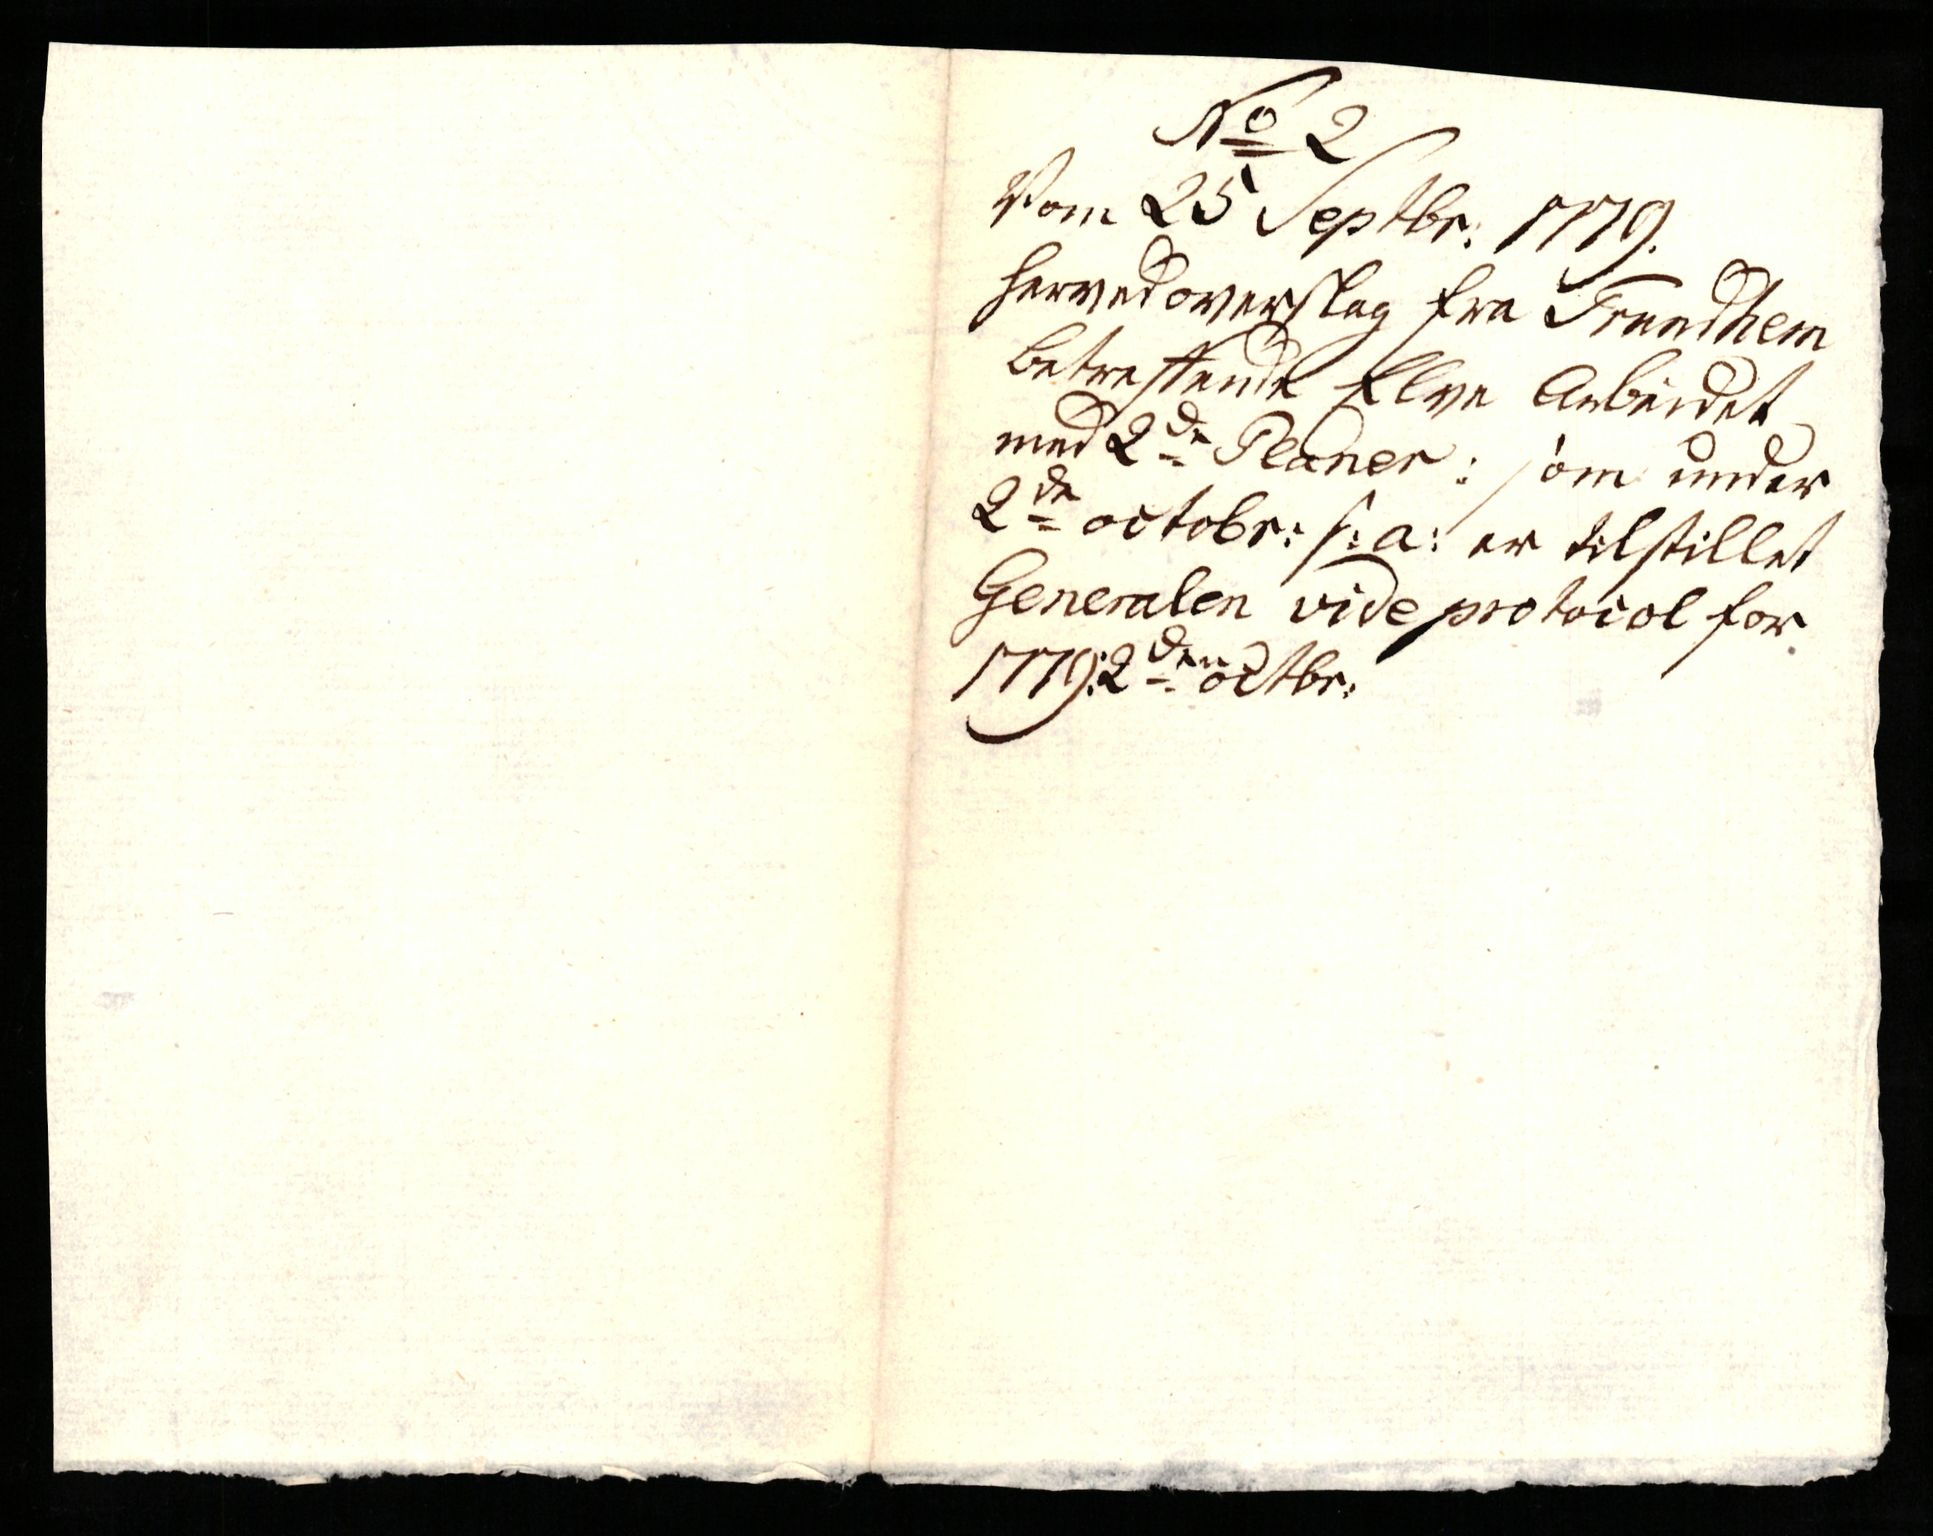 No 2
Vom 25 Septbr: 1779.
herved overslag fra Trundhem
betreffende Elve Arbeidet
med 2de Planer: som under
2de octobr: s: a: er tilstillet
Generalen vide protocol for
1779: 2den octbr: